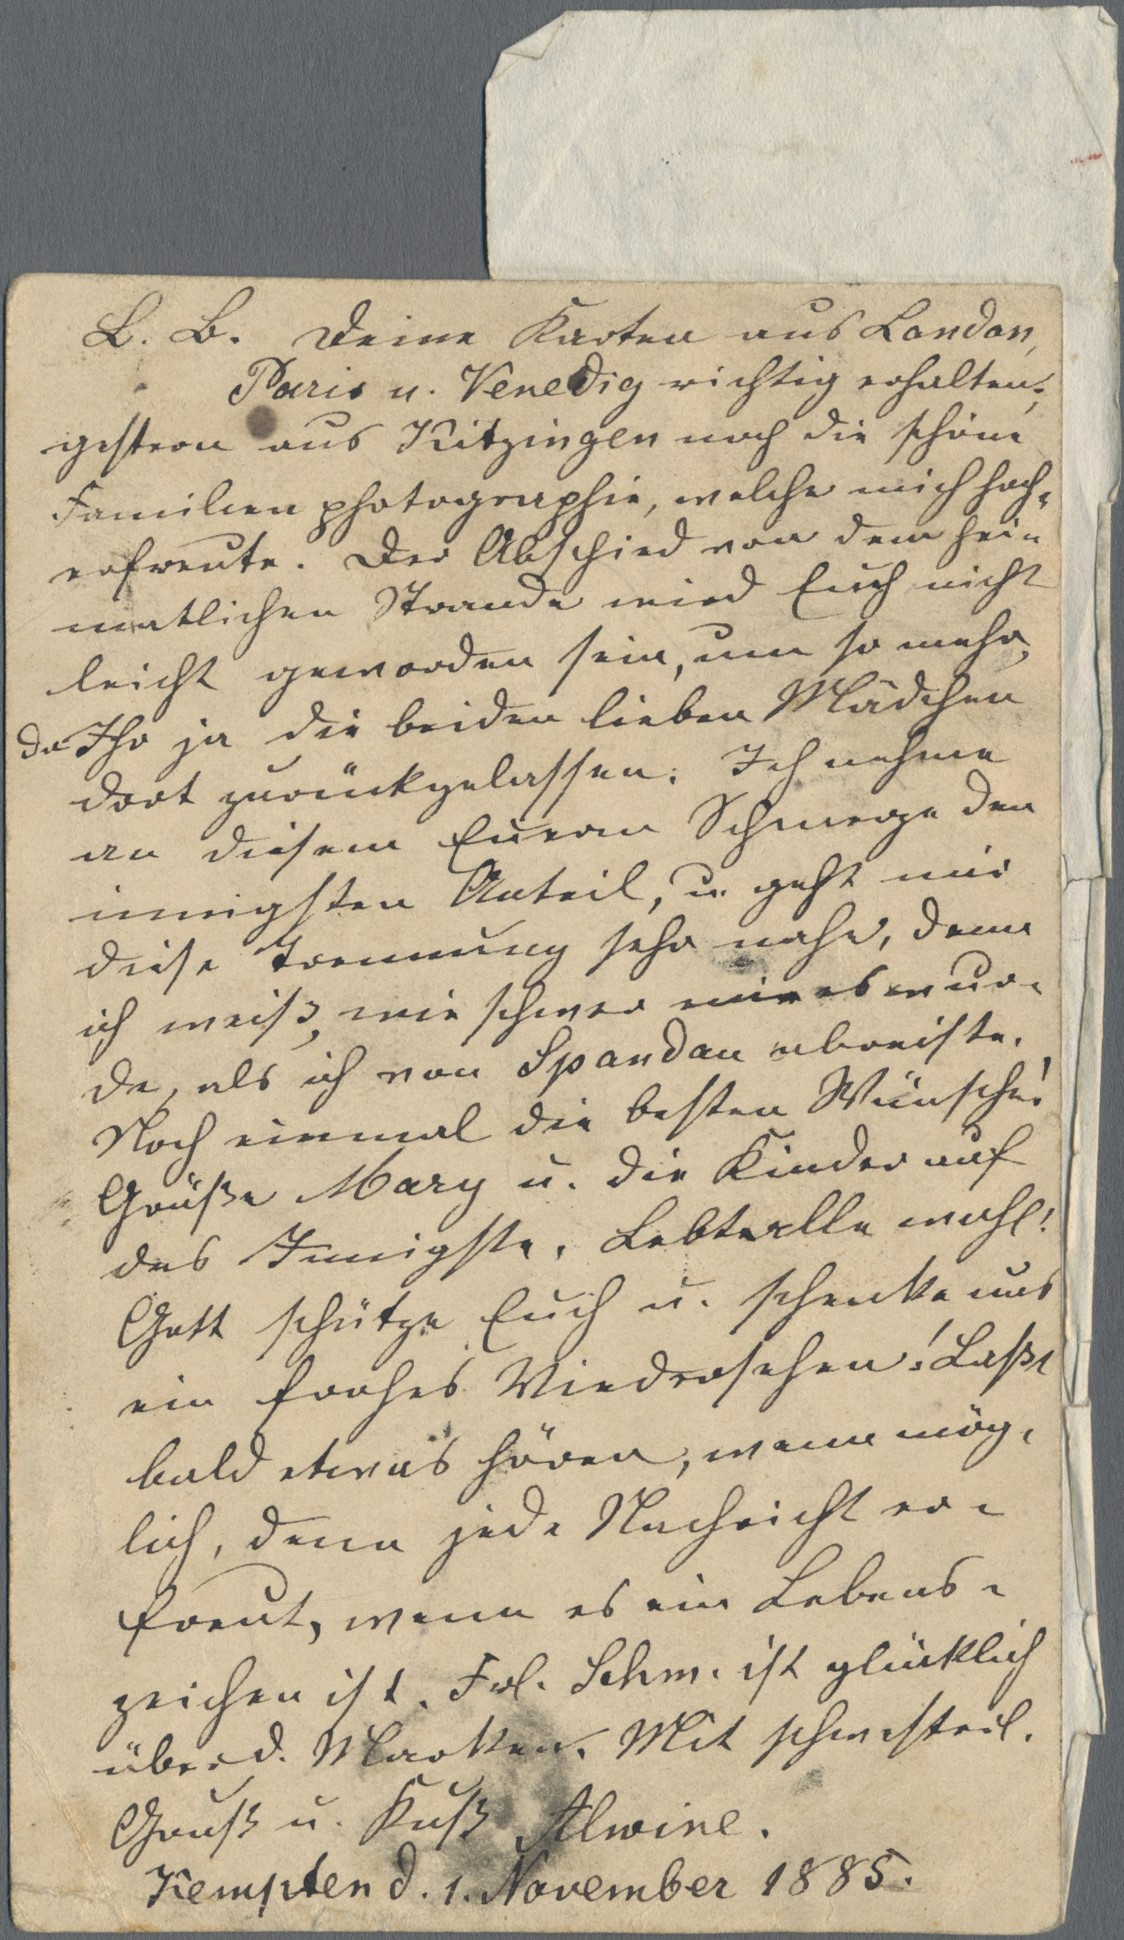 L. B. Deine Karten aus London,
Paris u. Venedig richtig erhalten;
gestern aus Kitzingen noch die schöne
Familienphotographie, welche mich hoch-
erfreute. Der Abschied von dem hei-
matlichen Strande wird Euch nicht
leicht geworden sein, um so mehr,
da Ihr ja die beiden lieben Mädchen
dort zurückgelassen. Ich nehme
an diesem Eurem Schmerze den
innigsten Anteil, u. geht mir
diese Trennung sehr nahe, denn
ich weiß, wie schwer mir es wur-
de, als ich von Spandau abreiste.
Noch einmal die besten Wünsche!
Grüße Mary u. die Kinder auf
das Innigste. Lebt alle wohl!
Gott schütze Euch u. schenke uns
ein frohes Wiedersehen! Laßt
bald etwas hören, wenn mög-
lich, denn jede Nachricht er-
freut, wenn es ein Lebens-
zeichen ist. Frl. Schm. ist glücklich
über d. Marken. Mit schwesterl.
Gruß u. Kuß Alwine.
Kempten d. 1. November 1885.